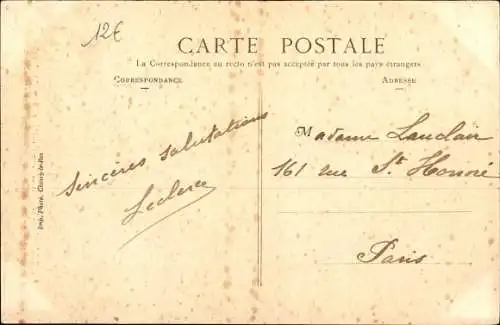 12€
CARTE POSTALE
La Correspondance au recto n'est pas acceptée par tous les pays étrangers
CORRESPONDANCE
ADRESSE
Sincères salutations
Leclerc
Madame Lauclair
161 rue St Honoré
Paris
Imp. Phot.